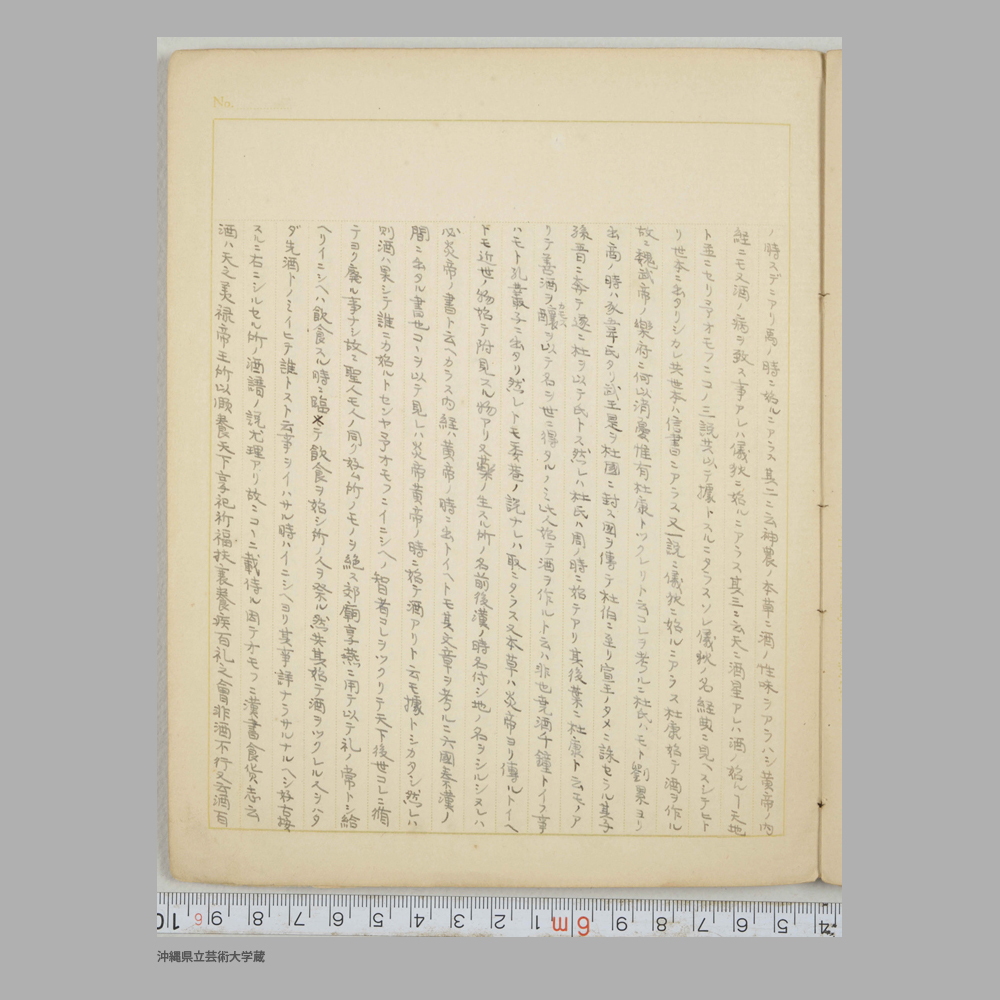 ノ時スデニアリ禹ノ時ニ始ルニアラス其二ニ云神農ノ本草ニ酒ノ性味ヲアラハシ黄帝ノ内
経ニモ又酒ノ病ヲ致ス事アレハ儀狄ニ始ルニアラス其三ニ云天ニ酒星アレハ酒ノ始ルヿ天地
ト並ニセリヲアオモフニコノ三説共以テ據トスルニタラスソレ儀狄ノ名経典ニ見ヘスシテヒト
リ世本ニ出タリシカレ共世本ハ信書ニアラス又一説ニ儀狄ニ始ルニアラス杜康始テ酒ヲ作ル
故ニ魏武帝ノ樂府ニ何以消憂惟有杜康トツクレリト云コレヲ考ルニ杜氏ハモト劉累ヨリ
出商ノ時ハ豕韋氏タリ武王是ヲ杜國ニ封ス國ヲ傳テ杜伯ニ至リ宣王ノタメニ誅セラル其子
孫晋ニ奔テ遂ニ杜ヲ以テ氏トス然レハ杜氏ハ周ノ時ニ始テアリ其後葉ニ杜康ト云モノア
リテ善酒ヲ釀カモスヲ以テ名ヲ世ニ得タルノミ此人始テ酒ヲ作ルト云ハ非也堯酒千鐘トイフ事
ハモト孔叢子ニ出タリ然レトモ委巷ノ説ナレハ取ニタラス又本草ハ炎帝ヨリ傳ルトイヘ
ドモ近世ノ物始テ附見スル物アリ又藥ノ生スル所ノ名前後漢ノ時名付シ地ノ名ヲシルシヌレハ
必炎帝ノ書ト云ヘカラス内経ハ黄帝ノ時ニ出トイヘトモ其文章ヲ考ルニ六國秦漢ノ
間ニ出タル書也コヽヲ以テ見レハ炎帝黄帝ノ時ニ始テ酒アリト云モ據トシカタシ然レハ
則酒ハ果シテ誰ニカ始ルトセンヤ予オモフニイニシヘノ智者コレヲツクリテ天下後世コレニ循
テヨリ廢ル事ナシ故ニ聖人モ人ノ同ク好ム所ノモノヲ絶ス郊廟享燕ニ用テ以テ礼ノ常トシ給
ヘリイニシヘハ飲食スル時ニ臨テ飲食ヲ始シ所ノ人ヲ祭ル然共其始テ酒ヲツクレル人ヲシハタ
ダ先酒トノミイヒテ誰トスト云事ヲイハサル時ハイニシヘヨリ其事詳ナラサルナルヘシ 右按
スルニ右ニシルセル所ノ酒譜ノ説尤理アリ故ニコヽニ載侍ル周テオモフニ漢書食貨志云
酒ハ天之美禄帝王所以頤養天下享祀祈福扶衰養疾百礼之會非酒不行又云酒百
No.
沖縄県立芸術大学蔵